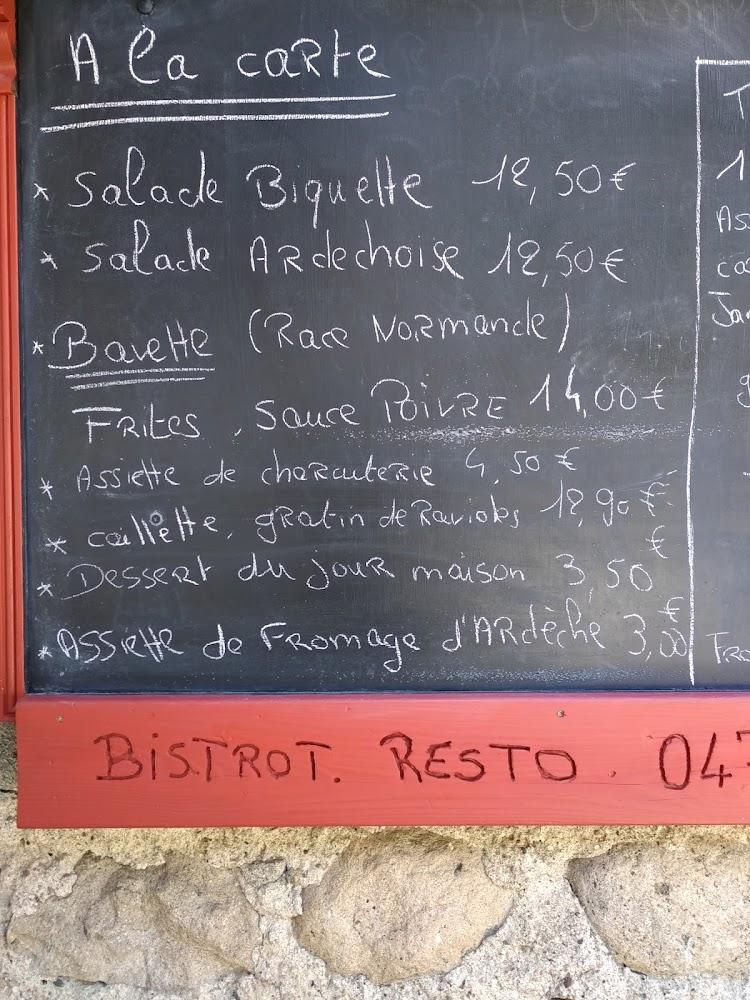 A la carte
* Salade Biquette 12,50€
* Salade Ardechoise 12,50€
* Bavette (Race Normande)
Frites, sauce POIVRE 14,00€
* Assiette de charcuterie 4,50€
* caillette, gratin de Ravioles 12,90€
* Dessert du jour maison 3,50€
* Assiette de Fromage d'Ardèche 3,00€
T
1
As
ca
Jar
g
Fro
BISTROT. RESTO. 047